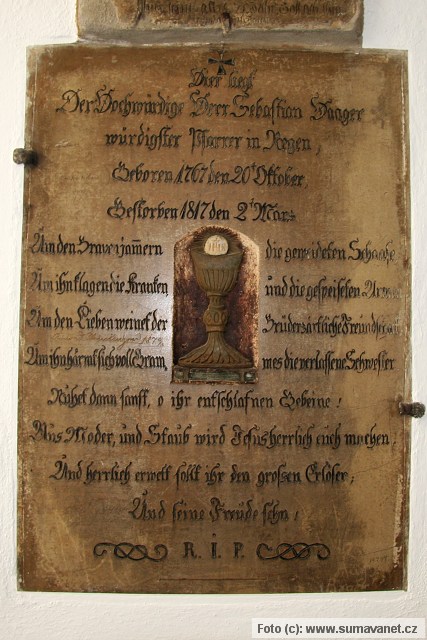 Hier liegt
Der Hochwürdige Herr Sebastian Haager
würdigster Pfarrer in Regen,
Geboren 1767 den 20t Oktober,
Gestorben 1817 den 2t März
Um den Grave jammern die geweideten Schaafe
Um ihn klagen die Kranken und die gespeisten Armen
Um den Lieben weinet der Brüderzärtliche Freundschaft
Um ihn härmt sich voll Gram, die verlassene Schwester
Ruhet dann sanft, o ihr entschlafnen Gebeine!
Aus Moder, und Staub wird Jesus herrlich euch machen;
Und herrlich erwekt sollt ihr den großen Erlöser;
Und seine Freude sehn!
R. I. P.
Foto (c): www.sumavanet.cz